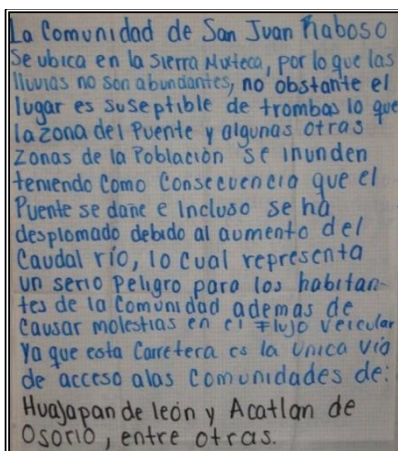 La Comunidad de San Juan Raboso
Se ubica en la Sierra Mixteca, por lo que las
lluvias no son abundantes, no obstante el
lugar es suseptible de trombas lo que
la zona del Puente y algunas otras
Zonas de la Población se inunden
teniendo Como Consecuencia que el
Puente se dañe e Incluso se ha
desplomado debido al aumento del
Caudal río, lo cual representa
un serio Peligro para los habitan-
tes de la Comunidad ademas de
causar molestias en el Flujo veicular
Ya que esta Carretera es la Unica Vía
de acceso alas Comunidades de:
Huajapan de león y Acatlan de
Osorio, entre otras.